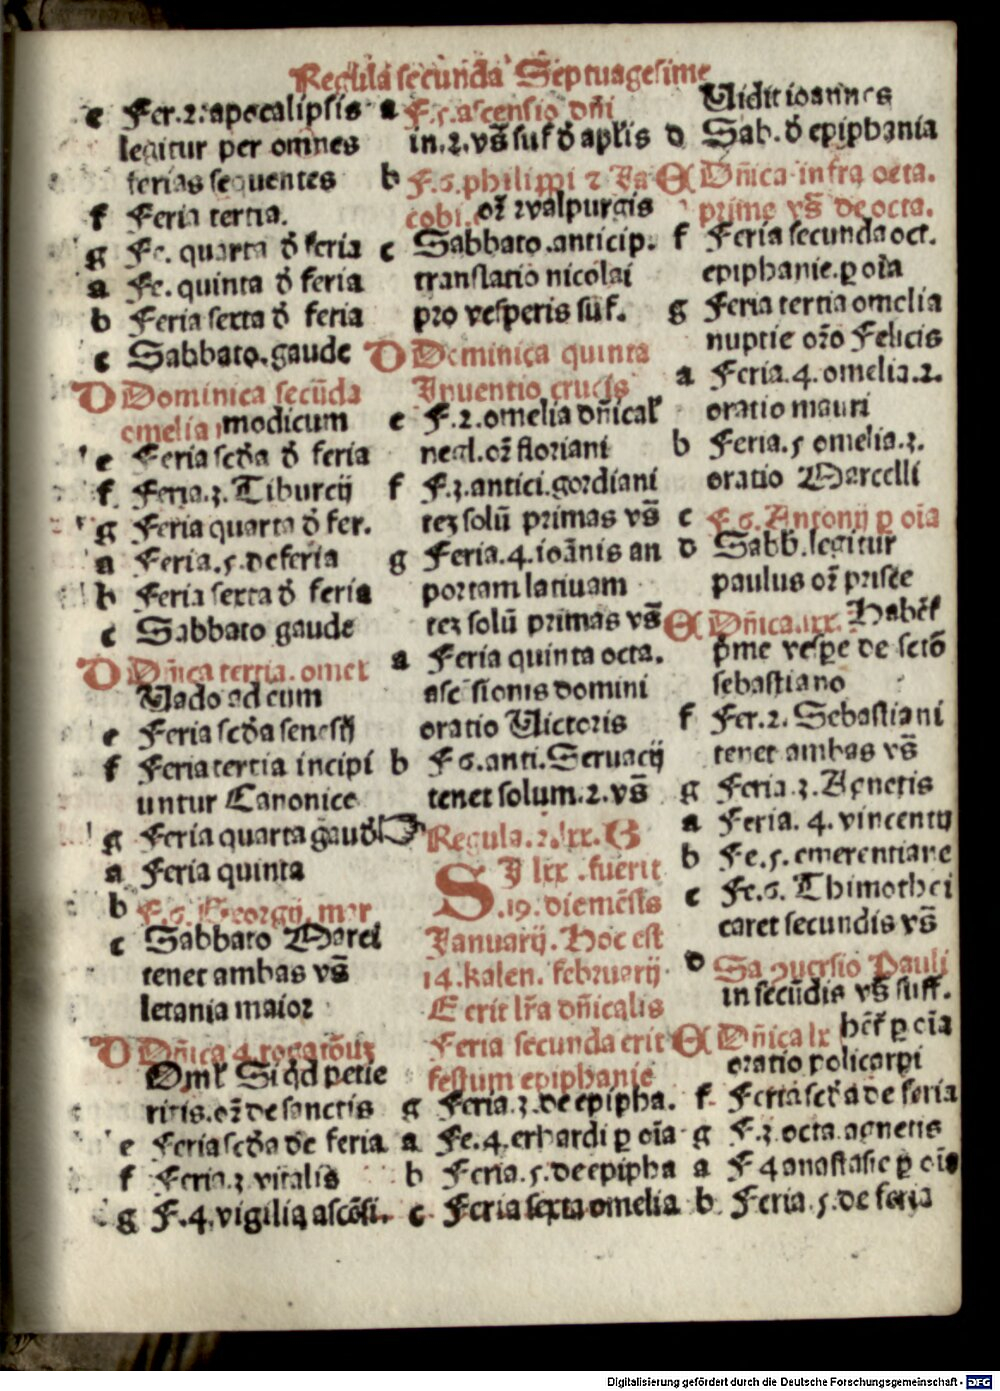 Regula secunda Septuagesime
e Fer.2.apocalipsis
legitur per omnes
ferias sequentes
f Feria tertia.
g Fe. quarta đ feria
a Fe. quinta đ feria
b Feria sexta đ feria
c Sabbato.gaude
D Dominica secūda
omelia modicum
e Feria scđa đ feria
f Feria.3.Tiburcij
g Feria quarta đ fer.
a Feria.5.deferia
b Feria sexta đ feria
c Sabbato gaude
D Dn̄ica tertia.omel
Vado ad eum
e Feria scđa
f Feria tertia incipi
untur Canonice
g Feria quarta gaud
a Feria quinta
b F.6.Georgij.mar
c Sabbato Marci
tenet ambas vs̄
letania maior
D Dn̄ica 4.
Omł Si qđ petie
ritis.oꝝ de sanctis
e Feria scđa de feria
f Feria.3 vitalis
g F.4.vigilia ascēsi.
a F.5.ascensio dn̄i
in.2.vs̄ suf đ aplis
b F.6.philippi ⁊ Ja
cobi. oꝝ walpurgis
c Sabbato.anticip.
translatio nicolai
pro vesperis suf.
D Dominica quinta
Inuentio crucis
e F.2.omelia dn̄ical
negl.oꝝ floriani
f F.3.antici.gordiani
tez solū primas vs̄
g Feria.4.ioānis an
portam latinam
tez solū primas vs̄
a Feria quinta octa.
ascēsionis domini
oratio Victoris
b F 6.anti.Seruacij
tenet solum.2.vs̄
☞ Regula.2.lxx. G
SI lxx .fuerit
.19. die mēsis
Januarij. Hoc est
14.kalen. februarij
E erit lr̄a dn̄icalis
Feria secunda erit
festum epiphanie
g Feria.3.de epipha.
a Fe.4.erhardi ꝑ oīa
b Feria.5.de epipha
c Feria sexta omelia
Vidit ioannes
d Sab. đ epiphania
E Dn̄ica infra octa.
prime vs̄ de octa.
f Feria secunda oct.
epiphanie.ꝑ oīa
g Feria tertia omelia
nuptie orō Felicis
a Feria.4.omelia.2.
oratio mauri
b Feria.5 omelia.3.
oratio Marcelli
c F 6.Antonij ꝑ oīa
d Sabb.legitur
paulus oꝝ prisce
E Dn̄ica.lxx. Habēt
pme vespe de sctō
sebastiano
f Fer.2.Sebastiani
tenet ambas vs̄
g Feria.3.Agnetis
a Feria.4.vincentij
b Fe.5.emerentiane
c Fe.6.Thimothei
caret secundis vs̄
d Sa ꝯuersio Pauli
in secūdis vs̄ suff.
E Dn̄ica lx hēt ꝑ oīa
oratio policarpi
f Feria scđa de feria
g F.3 octa.agnetis
a F 4 anastasie ꝑ oīa
b Feria.5.de feria
Digitalisierung gefördert durch die Deutsche Forschungsgemeinschaft - DFG